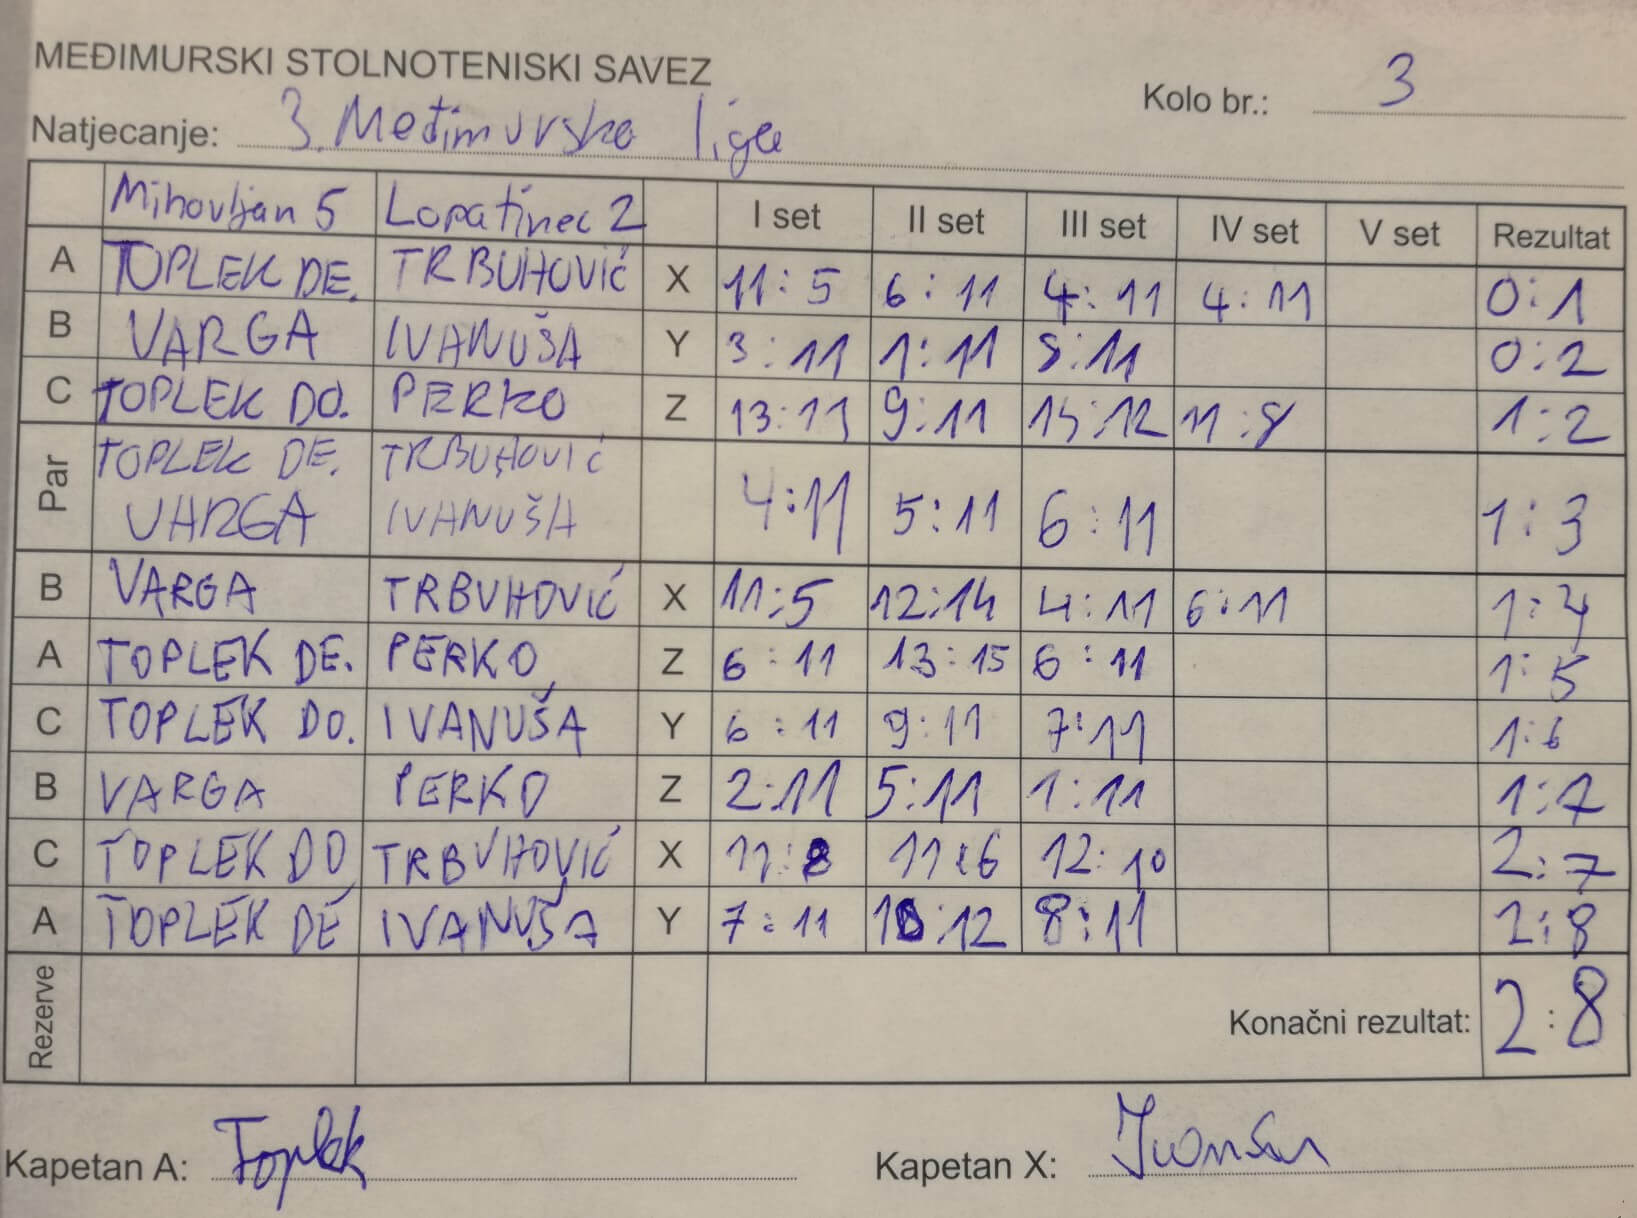 MEĐIMURSKI STOLNOTENISKI SAVEZ
Kolo br.: 3
Natjecanje: 3. Međimurska liga
Mihovljan 5 Lopatinec 2 I set II set III set IV set V set Rezultat
A TOPLEK DE. TRBUHOVIĆ X 11:5 6:11 4:11 4:11 0:1
B VARGA IVANUŠA Y 3:11 1:11 8:11 0:2
C TOPLEK DO. PERKO Z 13:11 9:11 14:12 11:8 1:2
Par TOPLEK DE. TRBUHOVIĆ 4:11 5:11 6:11 1:3
VARGA IVANUŠA
B VARGA TRBUHOVIĆ X 11:5 12:14 4:11 6:11 1:4
A TOPLEK DE. PERKO Z 6:11 13:15 6:11 1:5
C TOPLEK DO. IVANUŠA Y 6:11 9:11 7:11 1:6
B VARGA PERKO Z 2:11 5:11 1:11 1:7
C TOPLEK DO TRBUHOVIĆ X 11:8 11:6 12:10 2:7
A TOPLEK DE IVANUŠA Y 7:11 10:12 8:11 2:8
Rezerve Konačni rezultat: 2:8
Kapetan A: Toplek Kapetan X: